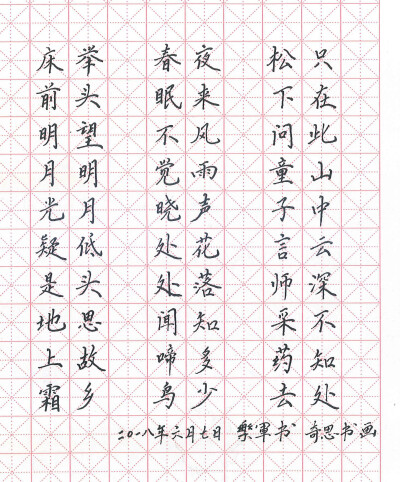 床前明月光疑是地上霜
举头望明月低头思故乡
春眠不觉晓处处闻啼鸟
夜来风雨声花落知多少
松下问童子言师采药去
只在此山中云深不知处
二〇一八年六月七日 樂軍书 奇思书画